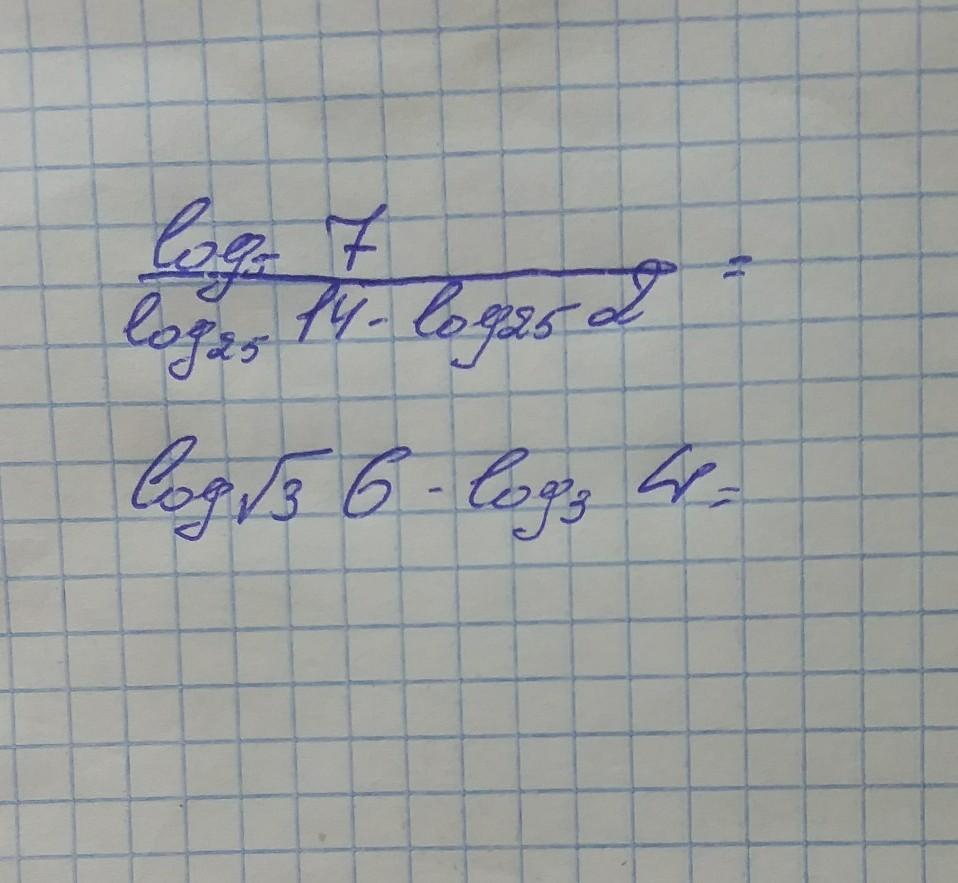 log₅ 7 =
log₂₅ 14 - log₂₅ 2
log√3 6 - log₃ 4 =